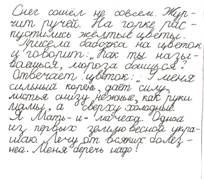 Снег сошёл не совсем. Жур-
чит ручей. На горке рас-
пустились жёлтые цветы.
Присела бабочка на цветок
и говорит: Как ты назы-
ваешься,
Отвечает цветок: У меня
сильный корень, даёт силу,
листья снизу нежные, как руки
мамы, а сверху холодные.
Я Мать-и-мачеха. Одна
из первых землю весной укра-
шаю. Лечу от всяких болез-
ней. Меня беречь надо!